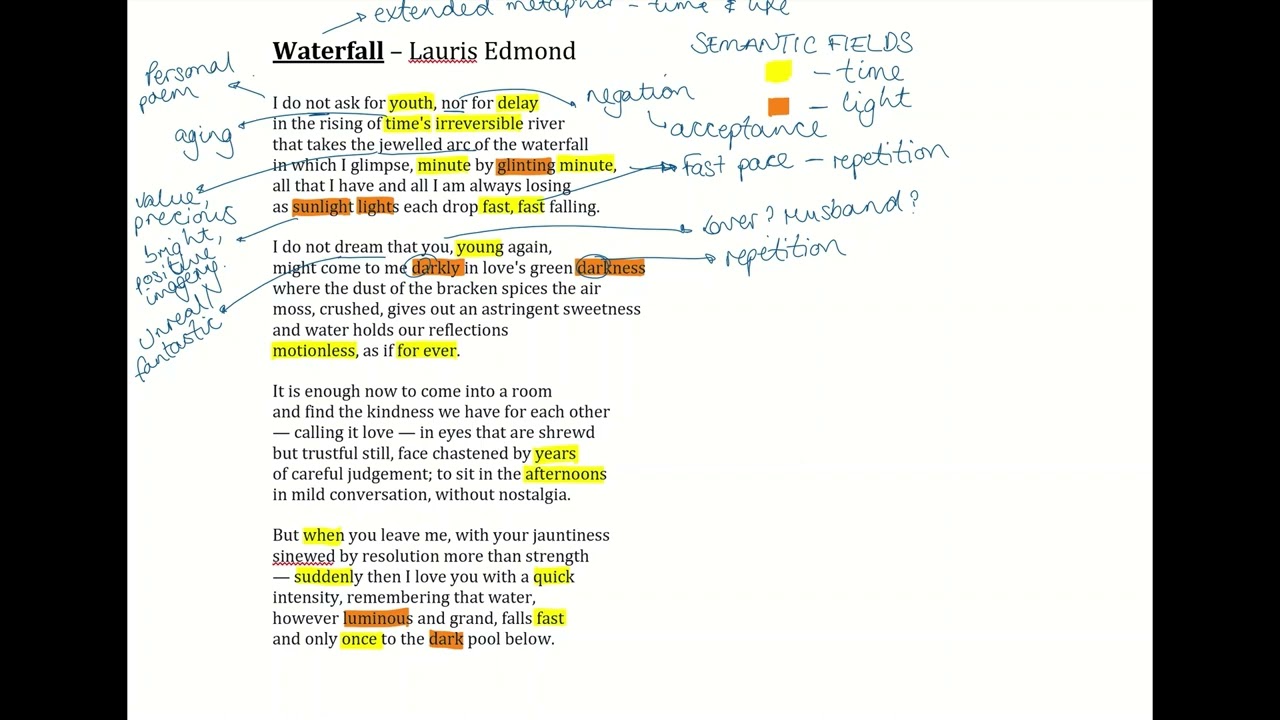 extended metaphor - time & life
Waterfall – Lauris Edmond
SEMANTIC FIELDS
- time
- light
Personal
poem
aging
value,
precious
bright,
positive
imagery.
unreal/
fantastic
negation
acceptance
Fast pace - repetition
Lover? Husband?
repetition
I do not ask for youth, nor for delay
in the rising of time's irreversible river
that takes the jewelled arc of the waterfall
in which I glimpse, minute by glinting minute,
all that I have and all I am always losing
as sunlight lights each drop fast, fast falling.
I do not dream that you, young again,
might come to me darkly in love's green darkness
where the dust of the bracken spices the air
moss, crushed, gives out an astringent sweetness
and water holds our reflections
motionless, as if for ever.
It is enough now to come into a room
and find the kindness we have for each other
— calling it love — in eyes that are shrewd
but trustful still, face chastened by years
of careful judgement; to sit in the afternoons
in mild conversation, without nostalgia.
But when you leave me, with your jauntiness
sinewed by resolution more than strength
— suddenly then I love you with a quick
intensity, remembering that water,
however luminous and grand, falls fast
and only once to the dark pool below.